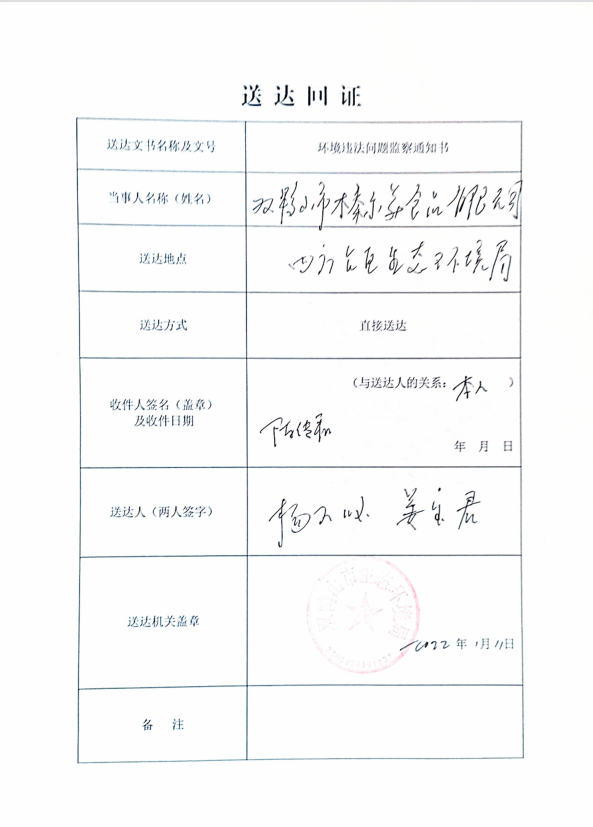 送达回证
送达文书名称及文号
环境违法问题监察通知书
当事人名称（姓名）
双鸭山市木森尔美食品有限公司
送达地点
四方台区生态环境局
送达方式
直接送达
收件人签名（盖章）
及收件日期
（与送达人的关系：本人 ）
年 月 日
送达人（两人签字）
姜宝君
送达机关盖章
双鸭山市生态环境局
2022年1月11日
备 注